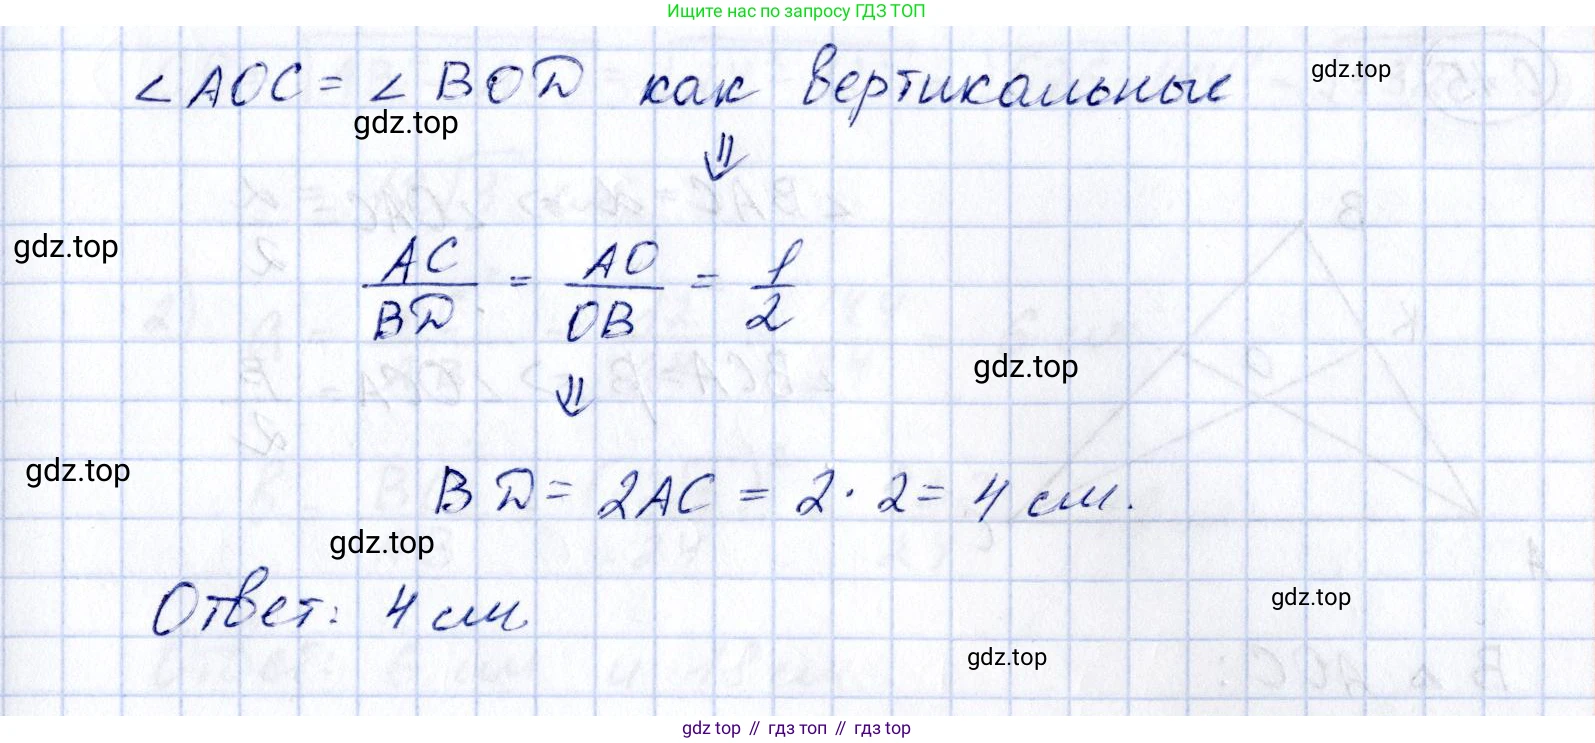 Ищите нас по запросу ГДЗ ТОП
∠AOC = ∠BOD как вертикальные
gdz.top
gdz.top
⇓
gdz.top
AC/BD = AO/OB = 1/2
gdz.top
⇓
gdz.top
BD = 2AC = 2 · 2 = 4 см.
gdz.top
Ответ: 4 см
gdz.top
gdz.top
gdz top // гдз топ // гдз top